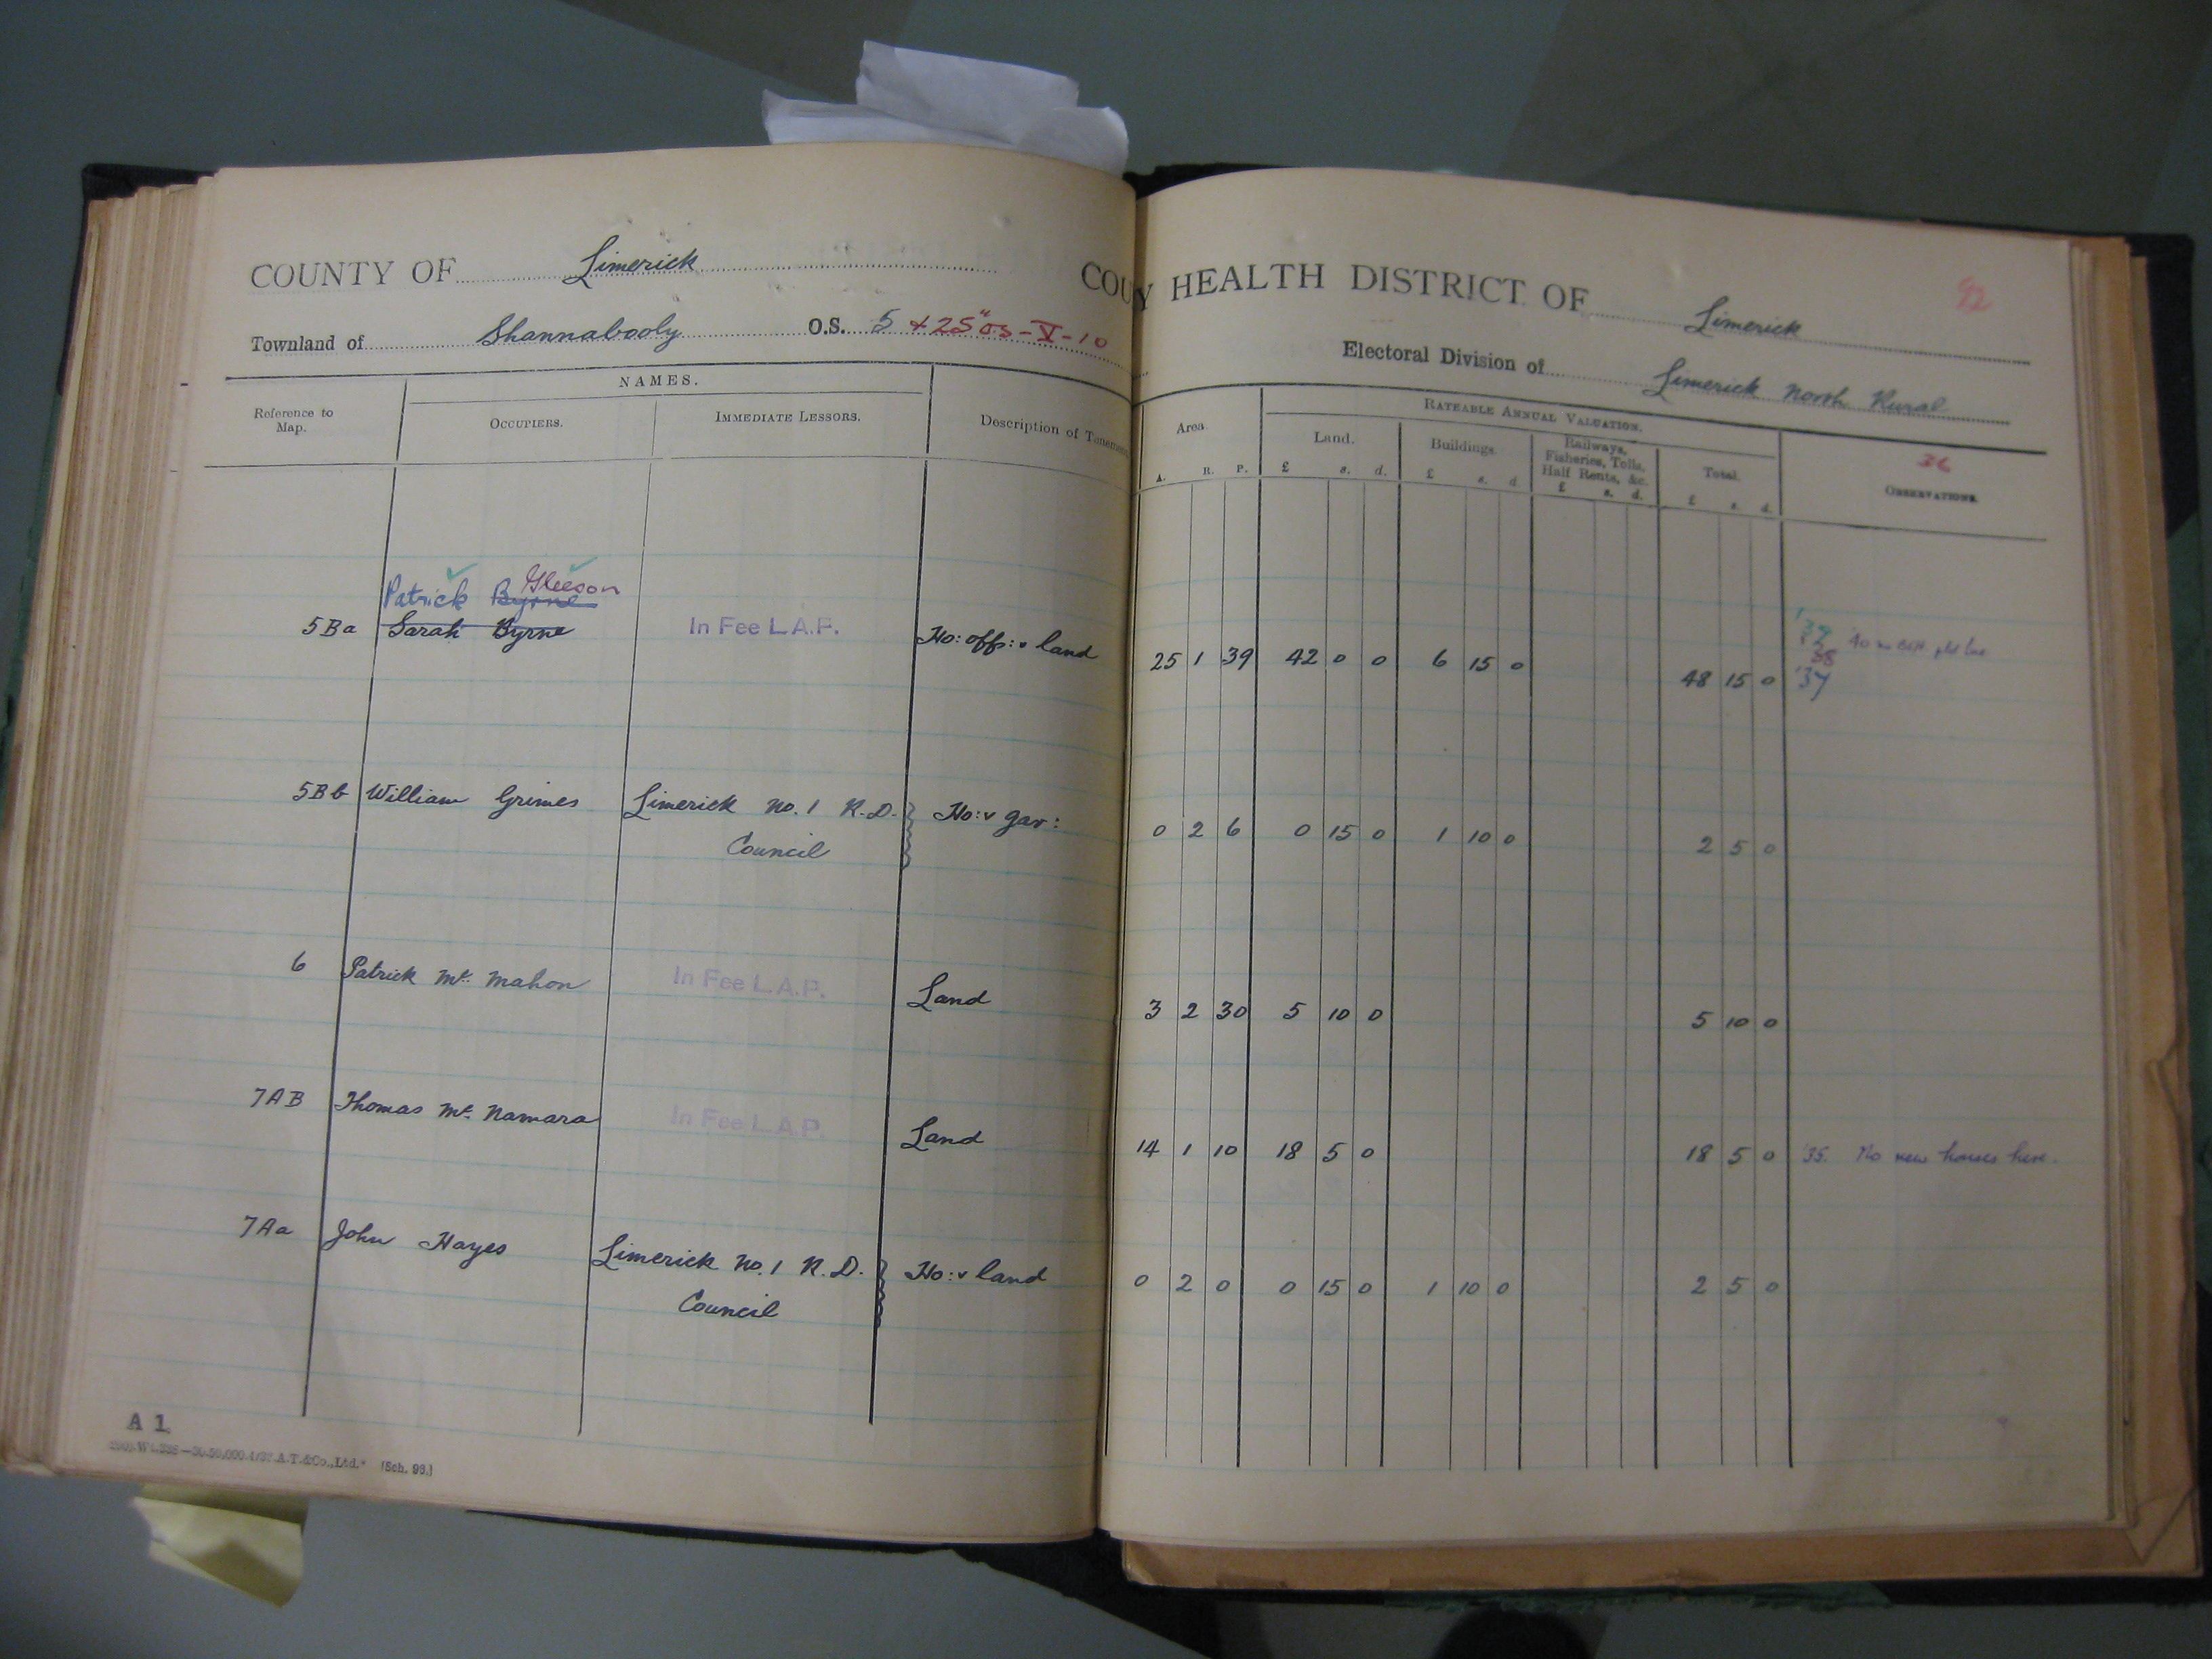 COUNTY OF Limerick
Townland of Shannabooly O.S. 5 + 25"os-V-10
COUN Y HEALTH DISTRICT OF Limerick 92
Electoral Division of Limerick North Rural
Reference to Map.
NAMES.
OCCUPIERS.
IMMEDIATE LESSORS.
Description of Tenement
Area.
A. R. P.
RATEABLE ANNUAL VALUATION.
Land.
£ s. d.
Buildings.
£ s. d.
Railways, Fisheries, Tolls, Half Rents, &c.
£ s. d.
Total.
£ s. d.
36
OBSERVATIONS.
Patrick Byrne Gleeson
5Ba Sarah Byrne In Fee L.A.P. Ho: off: v land 25 1 39 42 0 0 6 15 0 48 15 0
'39
'38
'37
'40
5Bb William Grimes Limerick No. 1 R.D. Council Ho: v gar: 0 2 6 0 15 0 1 10 0 2 5 0
6 Patrick Mc. Mahon In Fee L.A.P. Land 3 2 30 5 10 0 5 10 0
7AB Thomas Mc. Namara In Fee L.A.P. Land 14 1 10 18 5 0 18 5 0 '35. No new houses here.
7Aa John Hayes Limerick No. 1 R.D. Council Ho: v land 0 2 0 0 15 0 1 10 0 2 5 0
A 1.
A.T.&Co.,Ltd. [Sch. 93.]